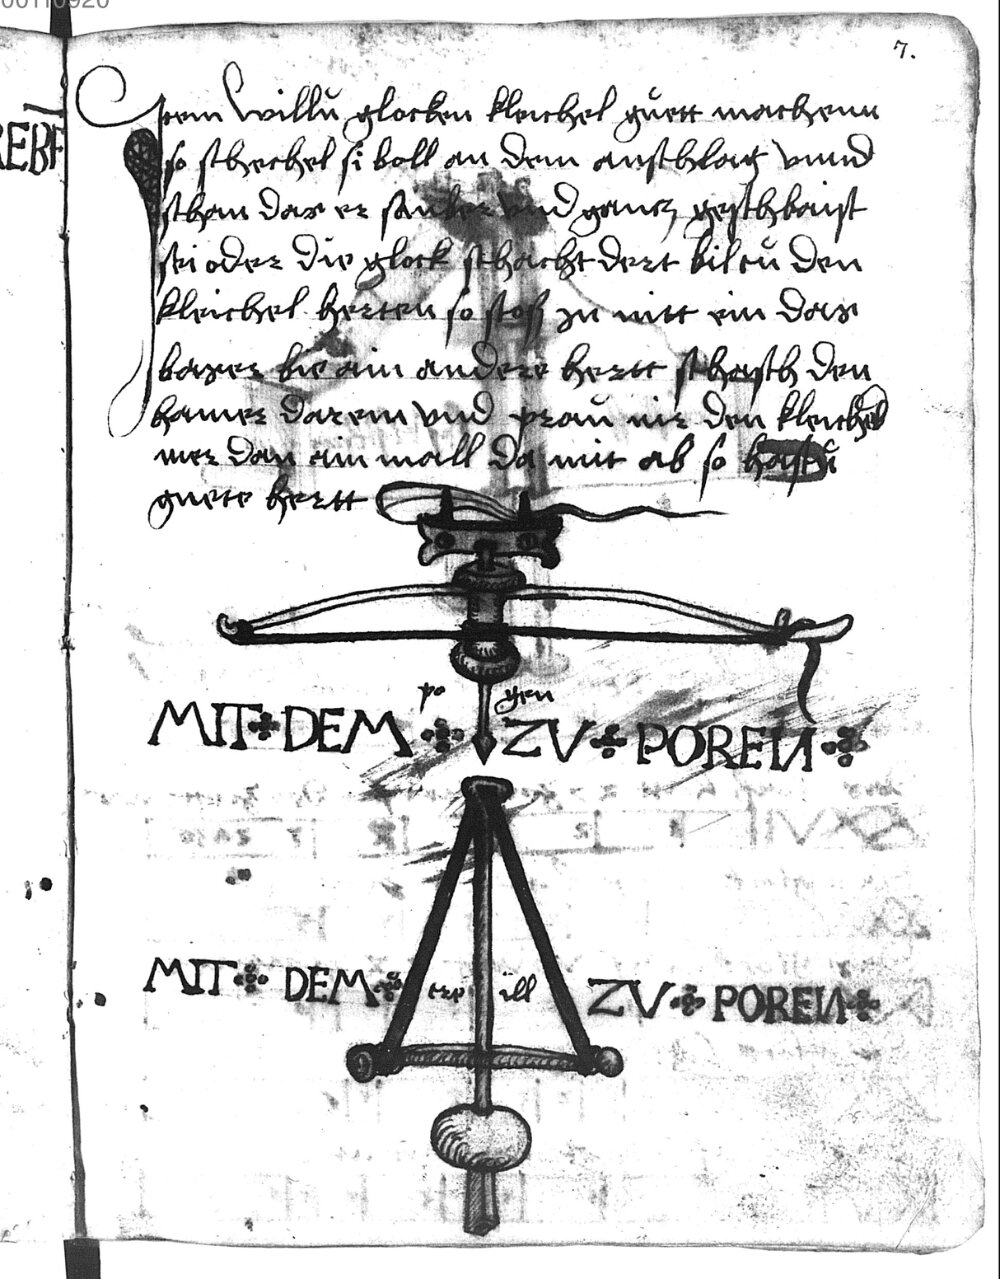 00110920
7.
REBE
Item willu glocken kleichel guett machenn
so schechel si woll an dem anschlag vnnd
schau das er sauber vnd gancz geschwaist
sei oder die glock schacht dert wiltu den
kleichel herten so stos zu nitt ein das
waser wie ain andere hertt schasth den
hamer darein vnd prau nir den kleichel
mer dan ain mall da mit ab so hastu
guete hertt
po gen
MIT DEM ZU POREN
MIT DEM ill ZU POREN